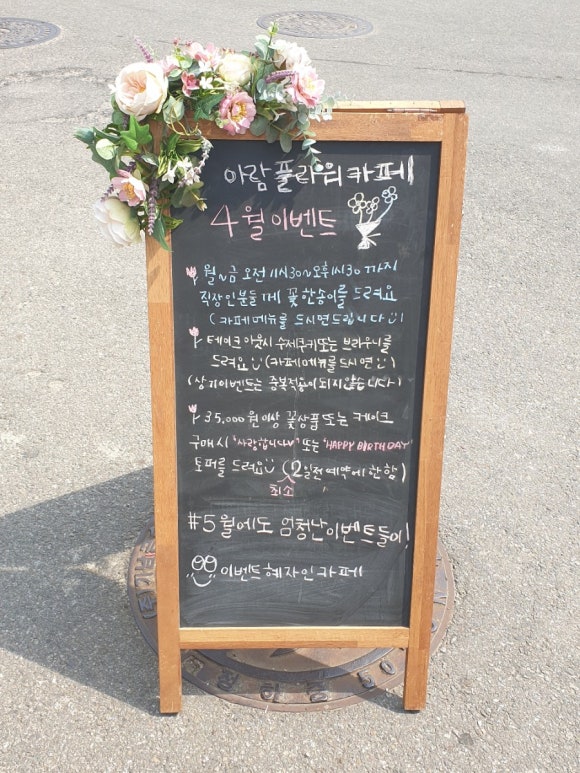 아람플라워카페
4월이벤트
월~금 오전 11시30~오후1시30까지
직장인분들께 꽃한송이를 드려요
(카페메뉴를 드시면드립니다)
테이크아웃시 수제쿠키또는 브라우니를
드려요 (카페메뉴를드시면)
(상기이벤트는 중복적용이되지않습니다)
35,000원이상 꽃상품 또는 케이크
구매시 '사랑합니다♡' 또는 'HAPPY BIRTHDAY'
토퍼를 드려요 (2일전예약에한함)
최소
#5월에도 엄청난이벤트들이!
이벤트혜자인카페